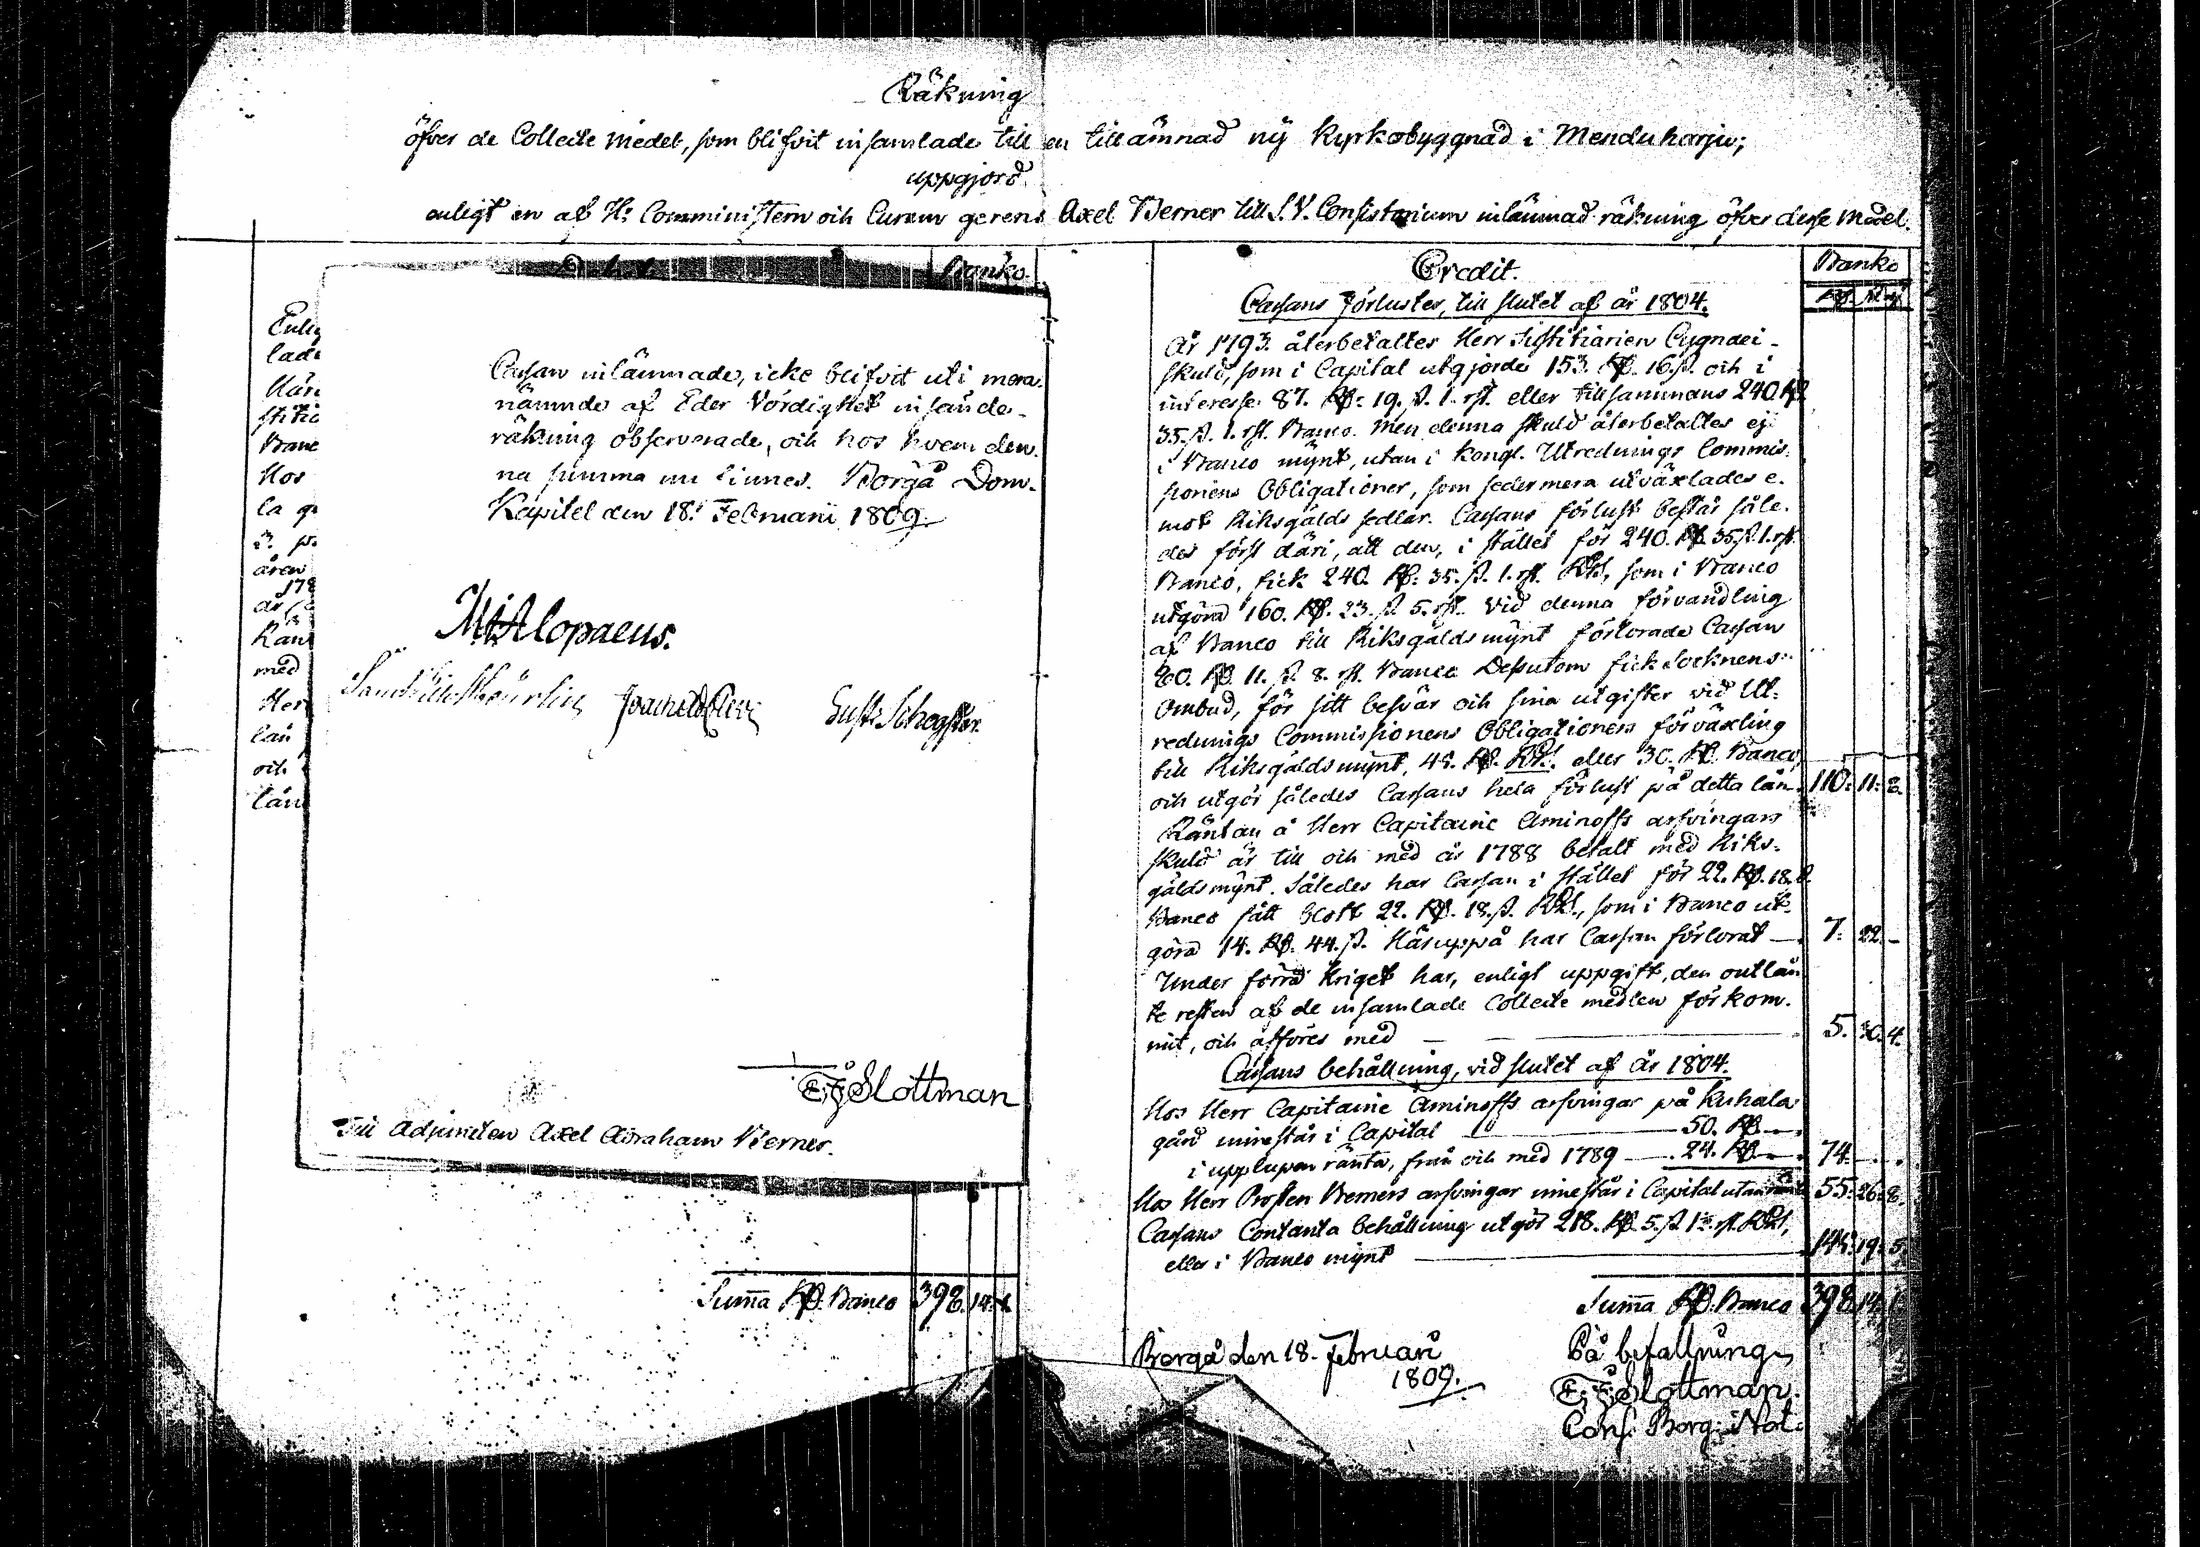 Räkning
öfver de Collecte medel, som blifvit insamlade till en tillämnad ny Kyrkobyggnad i Menduharju;
uppgjord
enligt en af Hr Comministern och Curam gerens Axel Berner till S. V. Consistorium inlämnad räkning öfver desse medel.
Banko.
Cassan inlämnade, icke blifvit uti mera
nämnde af Eder Vördighet insände
räkning observerade, och hos hvem den
na summa nu finnes. Borgå Dom-
Kapitel den 18. Februarii 1809
M. Alopaeus.
Gust. Schogster.
E. J. Slottman
Till Adjuncten Axel Abraham Berner.
lade
Hos
med
och
Summa Rd. Banco 398. 14. 1.
Credit.
Banko
Cassans förluster, till slutet af år 1804.
År 1793. återbetaltes Herr Justitiarien Cygnaei
skuld, som i Capital utgjorde 153. Rd. 16. ß. och i
interesse 87. Rd. 19. ß. 1. rst. eller tillsammans 240. Rd.
35. ß. 1. rst. Banco. Men denna skuld återbetaltes ej
i Banco mynt, utan i Kongl. Utrednings Commis-
sionens Obligationer, som sedermera utväxlades e-
mot Riksgälds sedlar. Cassans förlust består såle-
des först däri, att den, i stället för 240. Rd. 35. ß. 1. rst.
Banco, fick 240. Rd. 35. ß. 1. rst. RGs, som i Banco
utgöra 160. Rd. 23. ß. 5. rst. Vid denna förvandling
af Banco till Riksgälds mynt förlorade Cassan
80. Rd. 11. ß. 8. rst. Banco Dessutom fick Socknens
Ombud, för sitt besvär och sina utgifter vid Ut-
rednings Commissionens Obligationers förväxling
till Riksgälds mynt, 45. Rd. RGs. eller 30. Rd. Banco,
och utgör således Cassans hela förlust på detta lån 110. 11. 8.
Räntan å Herr Capitaine Aminoffs arfvingars
skuld är till och med år 1788 betalt med Riks-
gäldsmynt. Således har Cassan i stället för 22. Rd. 18. ß.
Banco fått blott 22. Rd. 18. ß. RGs., som i Banco ut-
göra 14. Rd. 44. ß. Häruppå har Cassan förlorat — 7. 22. —
Under förra Kriget har, enligt uppgift, den outlån
te resten af de insamlade Collecte medlen förkom-
mit, och afföres med — 5. 30. 4.
Cassans behållning, vid slutet af år 1804.
Hos Herr Capitaine Aminoffs arfvingar på Kuhala
gård innestår i Capital — 50. Rd. —
i upplupen ränta, från och med 1789 — 24. Rd. — 74. — .
Hos Herr Prosten Berners arfvingar innestår i Capital utan ränta 55. 26. 8.
Cassans Contanta behållning utgör 218. Rd. 5. ß. 1. rst. RGs,
eller i Banco mynt — 145. 19. 5.
Summa Rd. Banco 398. 14. 1.
Borgå den 18. Februari
1809.
På befallning
E. J. Slottman.
Cons. Borg. Not.